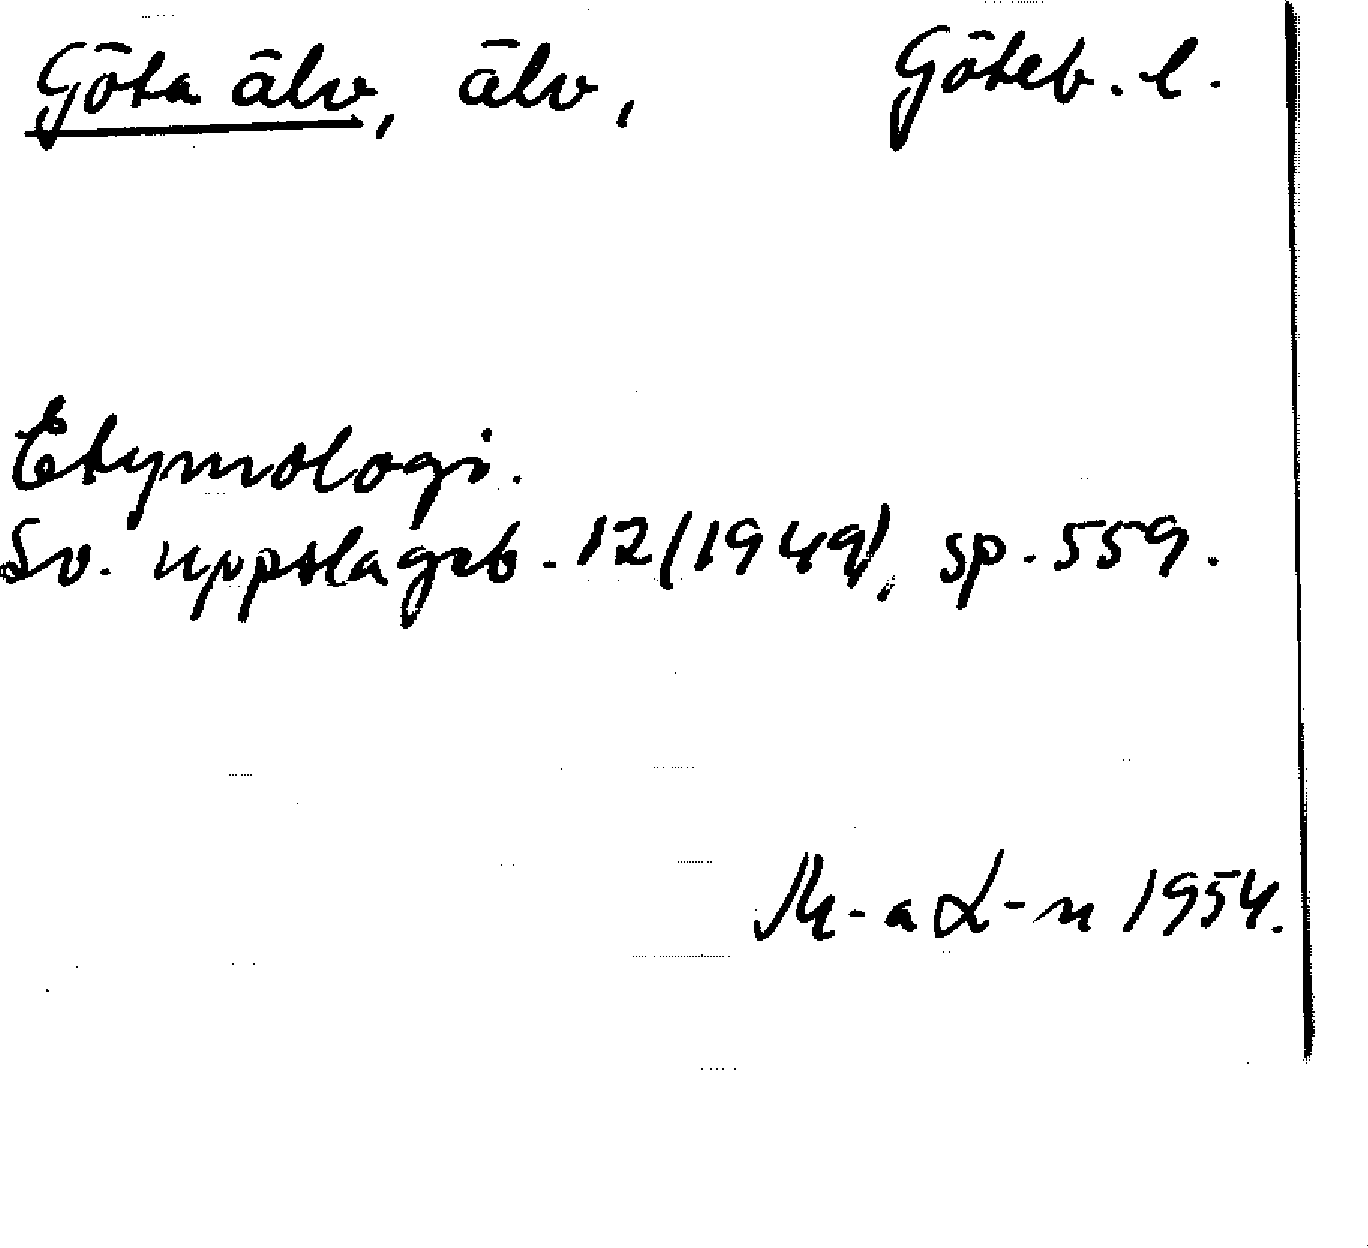 Göta älv, älv, Göteb. l.
Etymologi.
Sv. uppslagsb. 12 (1949), sp. 559.
M-a L-n 1954.